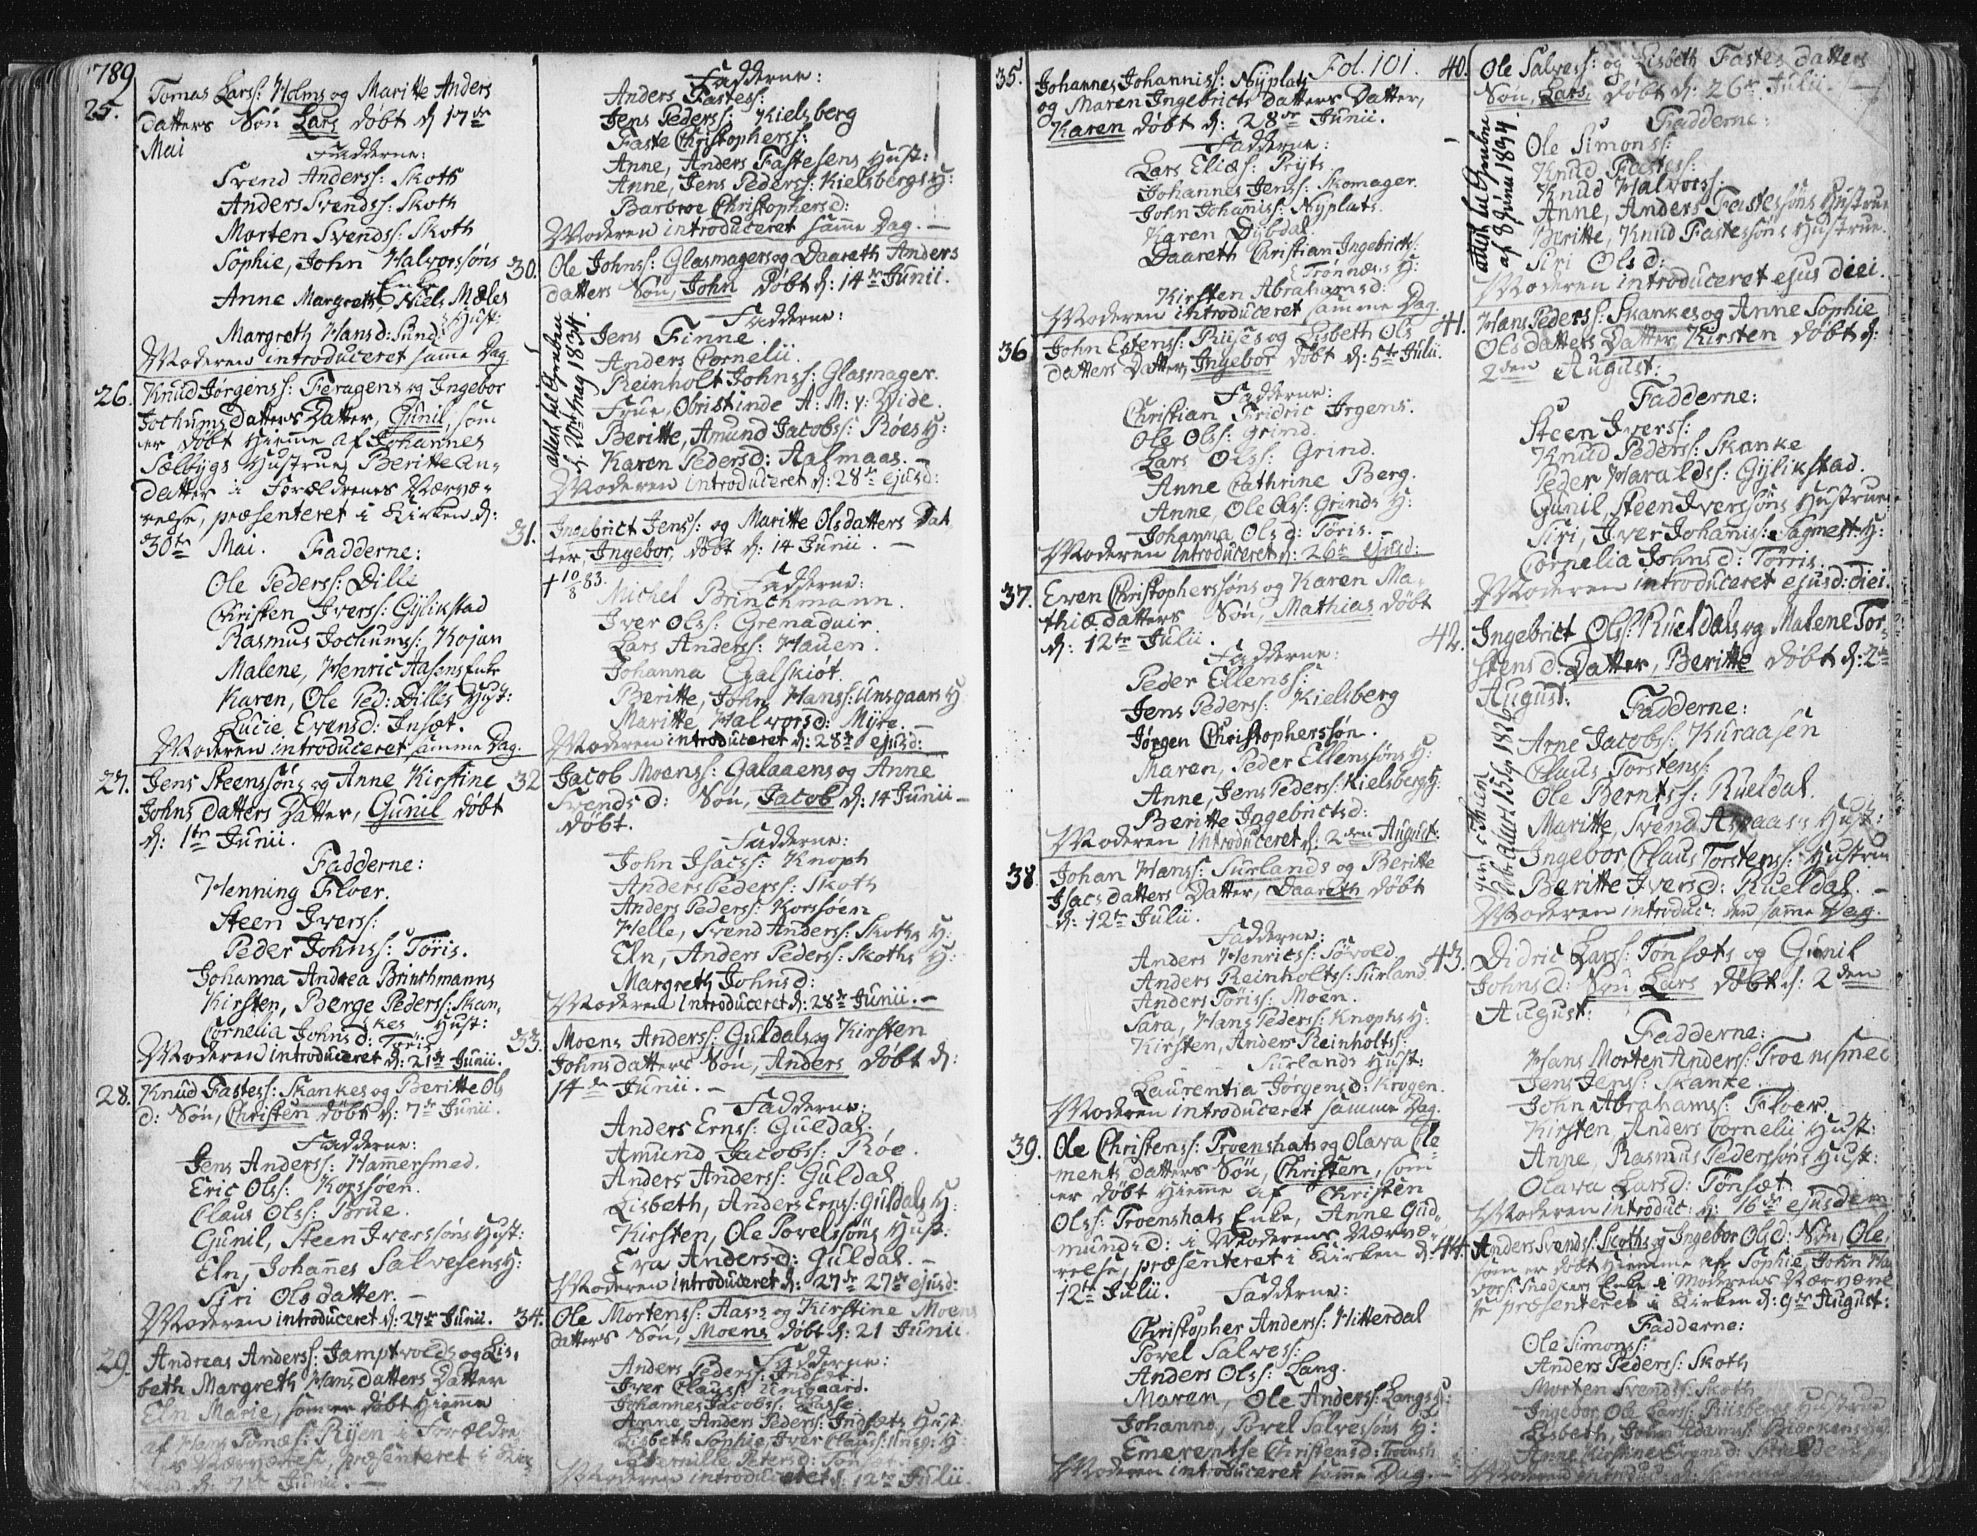 1789
25. Tomas Larss: Holms og Maritte Anders
datters Søn Lars døbt d 17de
Mai
Fadderne:
Svend Anderss: Skoth
Anders Svendss: Skoth
Morten Svendss: Skoth
Sophie, John Halvorssøns
Enke
Anne Margreth, Niels Mæles
Hust:
Margreth Hansd: Sund
Moderen introduceret samme Dag
26. Knud Jørgenss: Feragens og Ingebor
Jochums Datters Datter, Gunil, som
er døbt hiemme af Johannes
Sælbygs Hustrue Beritte An-
datter i Forældrenes Nærvæ-
relse, præsenteret i Kirken d:
30te Mai. Fadderne:
Ole Pederss: Dille
Christen Iverss: Gylikstad
Rasmus Jochumss: Kojan
Malene, Henric Aasens Enke
Karen, Ole Ped: Dilles Hust:
Lucie Evensd: Insæt.
Moderen introduceret samme Dag.
27. Jens Steenssøns og Anne Kirstine
Johns datters Datter, Gunil døbt
d: 1te Junii.
Fadderne:
Henning Floer.
Steen Iverss:
Peder Johnss: Tøris.
Johanna Andrea Brinchmanns
Kirsten, Berge Pederss: Skan-
kes Hust:
Cornelia Johnsd: Tøris
Moderen introduceret d: 21de Junii.
28. Knud Fastess: Skankes og Beritte Ols
d: Søn, Christen døbt d: 7de Junii.
Fadderne:
Jens Anderss: Hamersmed.
Eric Olss: Korssøen.
Claus Olss: Brue.
Gunil, Steen Iverssøns Hust:
Eln, Johannes Salvesens H:
Siri Olsdatter.
Moderen introduceret d: 27de Junii.
29. Andreas Anderss: Jamptvolds og Lis-
beth Margreth Hans datters Datter
Eln Marie, som er døbt hiemme
af Hans Tomæs: Rysen i Forældre
nes Nærværelse, præsenteret i Kir
d: 7de Junii.
Fadderne:
Anders Fastess:
Jens Pederss: Kielsberg
Faste Christophers:
Anne, Anders Fastesens Hust:
Anne, Jens Pederss: Kielsbergs H:
Barbroe Christophersd:
Moderen introduceret samme Dag.
30. Ole Johnss: Glasmagers og Daareth Anders
datters Søn, John døbt d: 14de Junii.
attest bel Grenken
d. 20de May 1834.
Fadderne:
Jens Finne.
Anders Cornelii.
Reinholt Johnss: Glasmager.
Frue, Christinde A: M: v: Wide.
Beritte, Amund Jacobss: Røes H:
Karen Pedersd: Aalmaas.
Moderen introduceret d: 28de ejusd:
31. Ingebrict Jenss: og Maritte Olsdatters Dat
ter, Ingebor, døbt d: 14 Junii.
† 10/8 83. Fadderne:
Michel Brinchmann.
Iver Olss: Grenaduir.
Lars Anderss: Hauen.
Johanna Galskiøt.
Beritte, John Hanss: Unsgaars H
Maritte Halvorsd: Myre.
Moderen introduceret d: 28de ejusd:
32 Jacob Moenss: Galaaens og Anne
Svendsd: Søn, Jacob d: 14 Junii
døbt.
Fadderne:
John Isacss: Knoph
Anders Pederss: Skoth
Anders Pederss: Korssøen
Helle, Svend Anderss: Skoths H:
Eln, Anders Pederss: Skoths H:
Margreth Johnsd:
Moderen introduceret d: 28de Junii.
33. Moens Anderss: Guldals og Kirsten
Johnsdatters Søn, Anders døbt d:
14de Junii.
Fadderne:
Anders Ernss: Guldal.
Amund Jacobss: Røe.
Anders Anderss: Guldal
Lisbeth, Anders Ernss: Guldals H:
Kirsten, Ole Povelssøns Hust:
Eva Andersd: Guldal.
Moderen introduceret d: 27de 27de ejusd:
34. Ole Mortenss: Aas:s og Kirstine Moens
datters Søn, Moens døbt d: 21 Junii.
Fadderne:
Anders Pederss: Indset.
Iver Clauss: Unsgaard.
Johannes Jacobss: Lasse.
Anne, Anders Pederss: Indsæts Hust.
Lisbeth Sophie, Iver Clauss: Unsg: H:
Pernille Petersd: Tønset.
Moderen introduceret d: 12te Julii.
Fol. 101.
35. Johannes Johanniss: Nyplats
og Maren Ingebricts datters Datter,
Karen døbt d: 28de Junii.
Fadderne:
Lars Eliæs: Pryts
Johannes Jenss: Skomager.
John Johaniss: Nyplats.
Karen Dybdal.
Daareth Christian Ingebrictss:
Trønnæs:s H:
Kirsten Abrahamsd:
Moderen introduceret samme Dag
36 John Estenss: Ruses og Lisbeth Ols
datters Datter, Ingebor døbt d: 5te Julii.
Fadderne:
Christian Fridric Irgens.
Ole Olss: Grind.
Lars Olss: Grind.
Anne Cathrine Berg.
Anne, Ole Olss: Grinds H:
Johanna Olsd: Tøris.
Moderen introduceret d: 26de ejusd:
37. Even Christopherssøns og Karen Ma-
thiædatters Søn, Mathias døbt
d: 12te Julii.
Fadderne:
Peder Ellenss:
Jens Pederss: Kielsberg
Jørgen Christopherssøn.
Maren, Peder Ellenssøns H:
Anne, Jens Pederss: Kielsbergs H:
Beritte Ingebrictsd:
Moderen introduceret d: 2den August:
38. Johan Hanss: Surlands og Beritte
Isacsdatters Datter, Daareth døbt
d: 12te Julii.
Fadderne:
Anders Henricss: Søvold.
Anders Reinholtss: Surland
Anders Tøriss: Moen.
Sara, Hans Pederss: Knophs H:
Kirsten, Anders Reinholtss:
Surlands Hust:
Laurentia Jørgensd: Krogen.
Moderen introduceret samme Dag.
39. Ole Christenss: Troenshats og Olava Cle-
ments datters Søn, Christen, som
er døbt hiemme af Christen
Olss: Troenshats Enke, Anne Gud-
mundsd: i Moderens Nærvæ-
relse, præsenteret i Kirken d:
12te Julii. Fadderne:
Christopher Anderss: Hitterdal
Povel Salvess:
Anders Olss: Lang.
Maren, Ole Anderss: Langs H:
Johanna, Povel Salvessøns H:
Emerentse Christensd: Troensh
Moderen introduceret samme Dag.
40. Ole Salvess: og Lisbeth Fastes datters
Søn, Lars, døbt d: 26de Julii.
attest bel Grenken
af 8 Juni 1834.
Fadderne:
Ole Simonss:
Knud Fastess:
Knud Halvorss:
Anne, Anders Fastessøns Hustrue
Beritte, Knud Fastessøns Hustrue.
Siri Olsd:
Moderen introduceret ejus diei.
41. Hans Pederss: Skankes og Anne Sophie
Ols datters Datter Kirsten døbt d:
2den August:
Fadderne:
Steen Iverss:
Knud Pederss: Skanke
Peder Haraldss: Gylikstad.
Gunil, Steen Iverssøns Hustrue
Siri, Iver Johaniss: Sagmest: H:
Cornelia Johnsd: Tørris.
Moderen introduceret ejusd: diei.
42. Ingebrict Olss: Rueldals og Malene Tor-
stensd: Datter, Beritte døbt d: 2de
August:
Fadderne:
Arne Jacobss: Kuraasen
Claus Torstenss:
Ole Berntss: Rueldal.
Maritte, Svend Aspaas:s Hust:
Ingebor Claus Torstenss: Hustrue
Beritte Iversd: Rueldal.
Moderen introduc: den samme Dag.
43. Didric Larss: Tønsæts og Gunil
Johnsd: Søn Lars døbt d: 2den
August:
Fadderne:
Hans Morten Anderss: Troenssmed
Jens Jenss: Skanke.
John Abrahamss: Floer
Kirsten, Anders Cornelii Hust:
Anne, Rasmus Pederssøns Hust:
Olava Larsd: Tønsæt
Moderen introduc: d: 16de ejusdem
44. Anders Svendss: Skoths og Ingebor Olsd: Søn, Ole,
som er døbt hiemme af Sophie, John Ha
vors: Snedkers Enke i Moderens Nærværel
se præsenteret i Kirken d: 9de August:
Fadderne:
Ole Simonss:
Anders Pederss: Skoth
Morten Svendss: Skoth
Ingebor Ole Larss: Riisbergs Hustrue
Lisbeth, John Adamss: Biørkens H:
Anne Kirstine Evensd:
Moderen introduc: d: samme Dag